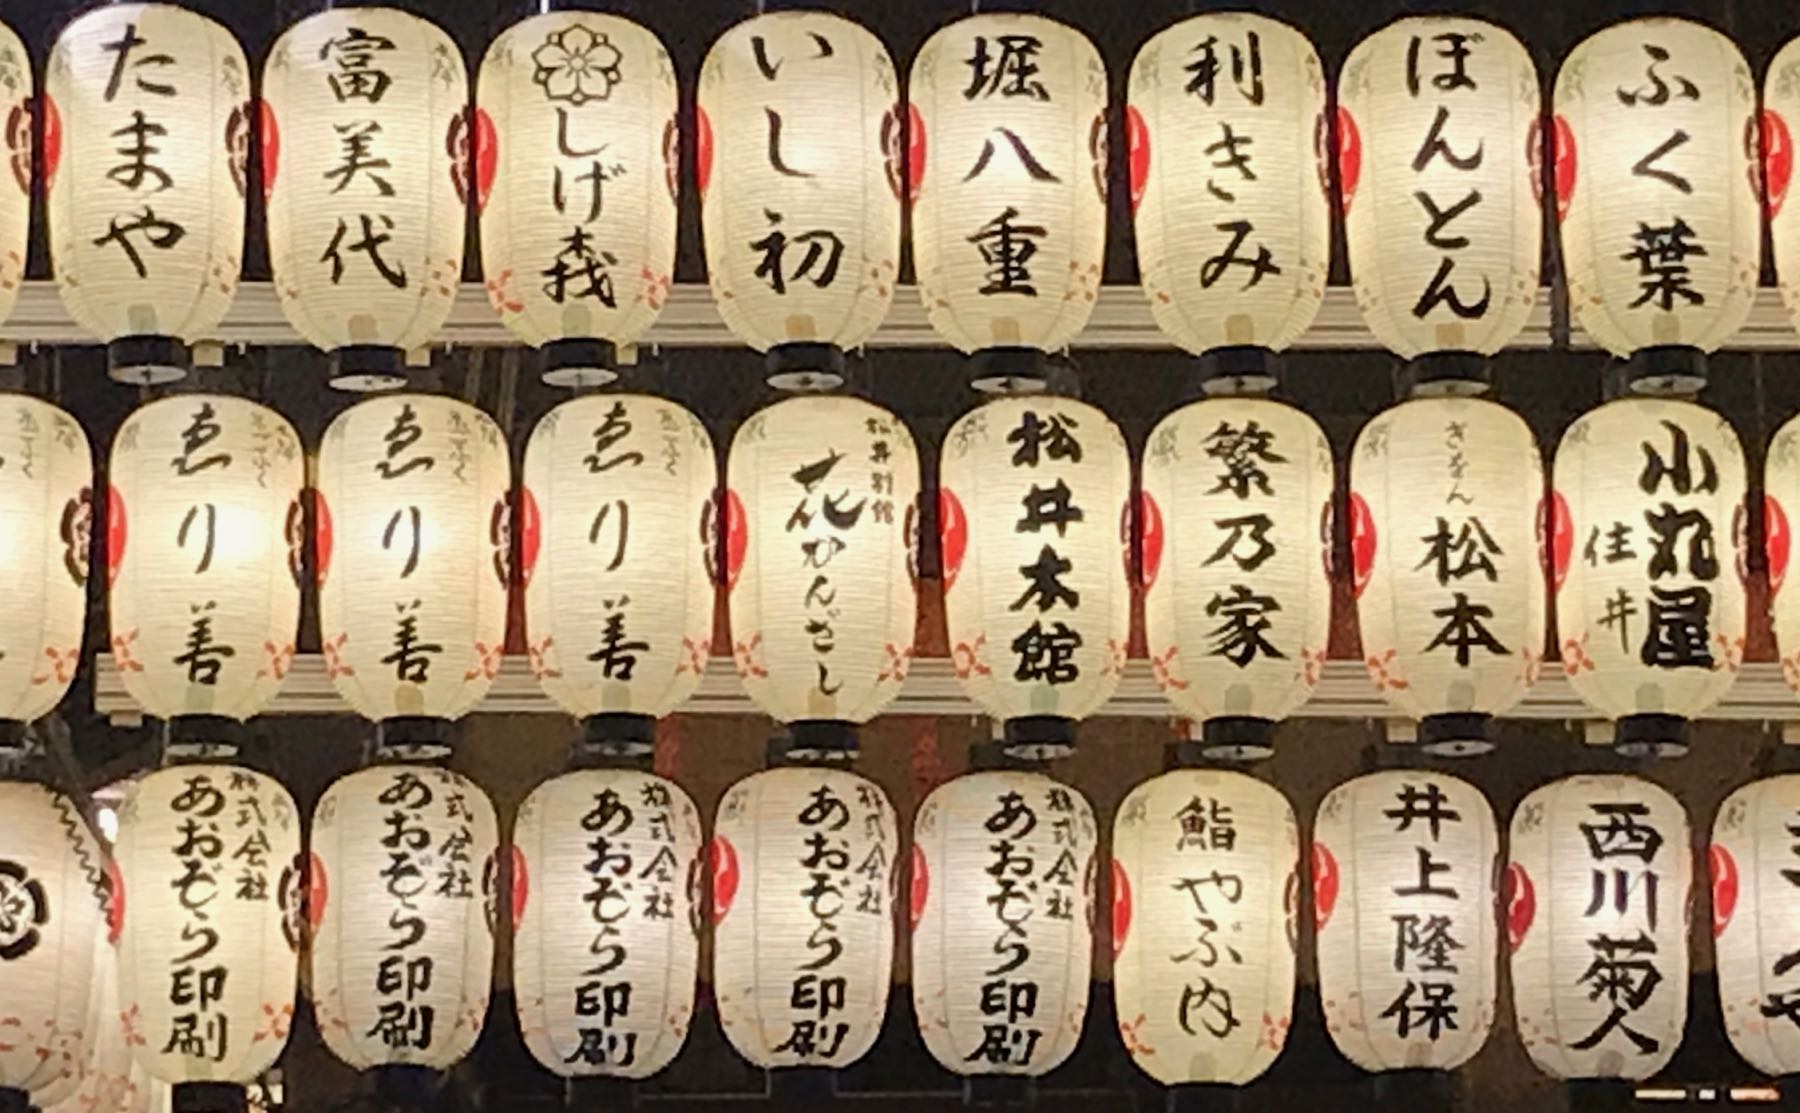 たまや
富美代
しげ森
いし初
堀八重
利きみ
ぼんとん
ふく葉
ゑり善
ゑり善
ゑり善
松井別館
花かんざし
松井本館
繁乃家
ぎをん
松本
小丸屋
住井
株式会社
あおぞら印刷
株式会社
あおぞら印刷
株式会社
あおぞら印刷
株式会社
あおぞら印刷
株式会社
あおぞら印刷
鮨
やぶ内
井上隆保
西川菊人